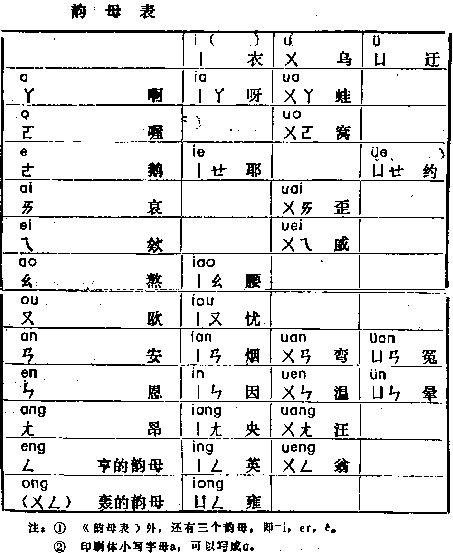 韵母表
i ( ) u ü
丨 衣 ㄨ 乌 ㄩ 迂
a ia ua
ㄚ 啊 丨ㄚ 呀 ㄨㄚ 蛙
o uo
ㄛ 喔 ㄨㄛ 窝
e ie üe
ㄜ 鹅 丨ㄝ 耶 ㄩㄝ 约
ai uai
ㄞ 哀 ㄨㄞ 歪
ei uei
ㄟ 欸 ㄨㄟ 威
ao iao
ㄠ 熬 丨ㄠ 腰
ou iou
ㄡ 欧 丨ㄡ 忧
an ian uan üan
ㄢ 安 丨ㄢ 烟 ㄨㄢ 弯 ㄩㄢ 冤
en in uen ün
ㄣ 恩 丨ㄣ 因 ㄨㄣ 温 ㄩㄣ 晕
ang iang uang
ㄤ 昂 丨ㄤ 央 ㄨㄤ 汪
eng ing ueng
ㄥ 亨的韵母 丨ㄥ 英 ㄨㄥ 翁
ong iong
(ㄨㄥ) 轰的韵母 ㄩㄥ 雍
注：① 《韵母表》外，还有三个韵母。即-i，er，ê。
② 印刷体小写字母a，可以写成ɑ。